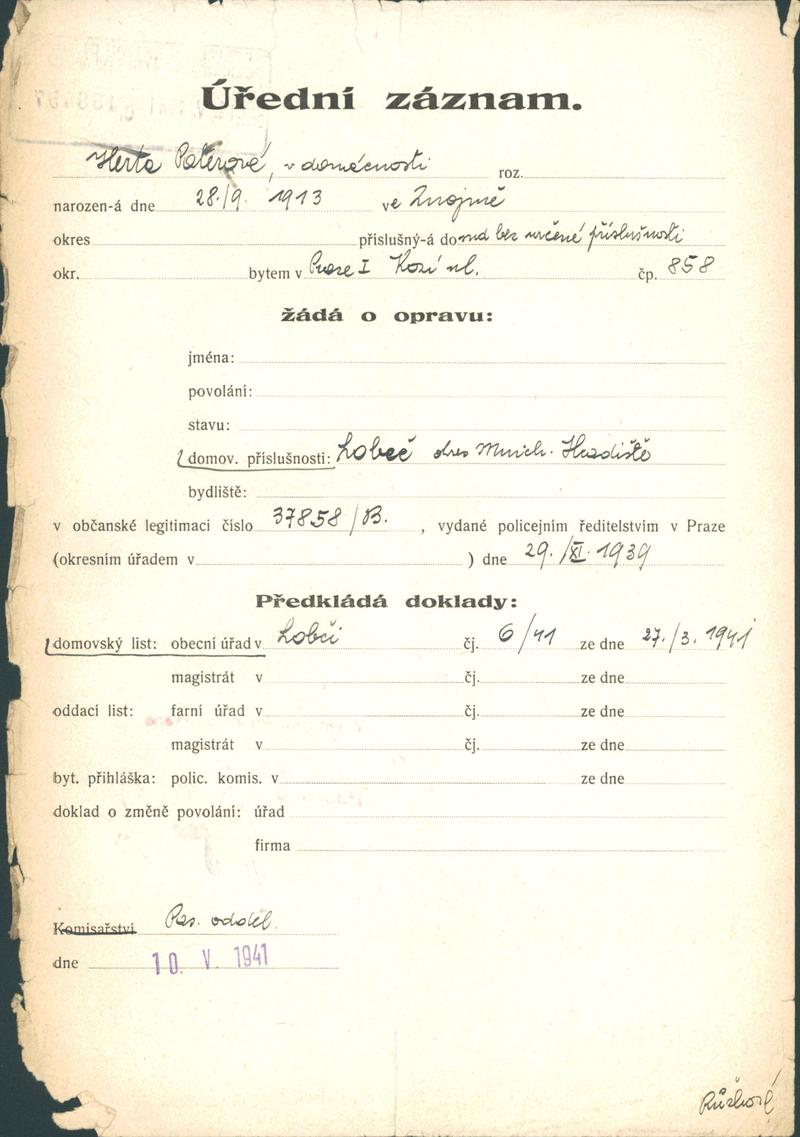 Úřední záznam.
Herta Polerová, v domácnosti roz.
narozen-á dne 28./9. 1913 ve Znojmě
okres příslušný-á do bez určené příslušnosti
okr. bytem v Praze I Kozí ul. čp. 858
žádá o opravu:
jména:
povolání:
stavu:
domov. příslušnosti: Lobeč okres Mnich. Hradiště
bydliště:
v občanské legitimaci číslo 37858/B. , vydané policejním ředitelstvím v Praze
(okresním úřadem v ) dne 29./XI. 1939
Předkládá doklady:
domovský list: obecní úřad v Lobči čj. 6/41 ze dne 27./3. 1941
magistrát v čj. ze dne
oddací list: farní úřad v čj. ze dne
magistrát v čj. ze dne
byt. přihláška: polic. komis. v ze dne
doklad o změně povolání: úřad
firma
Komisařství Pas. odděl.
dne 10. V. 1941